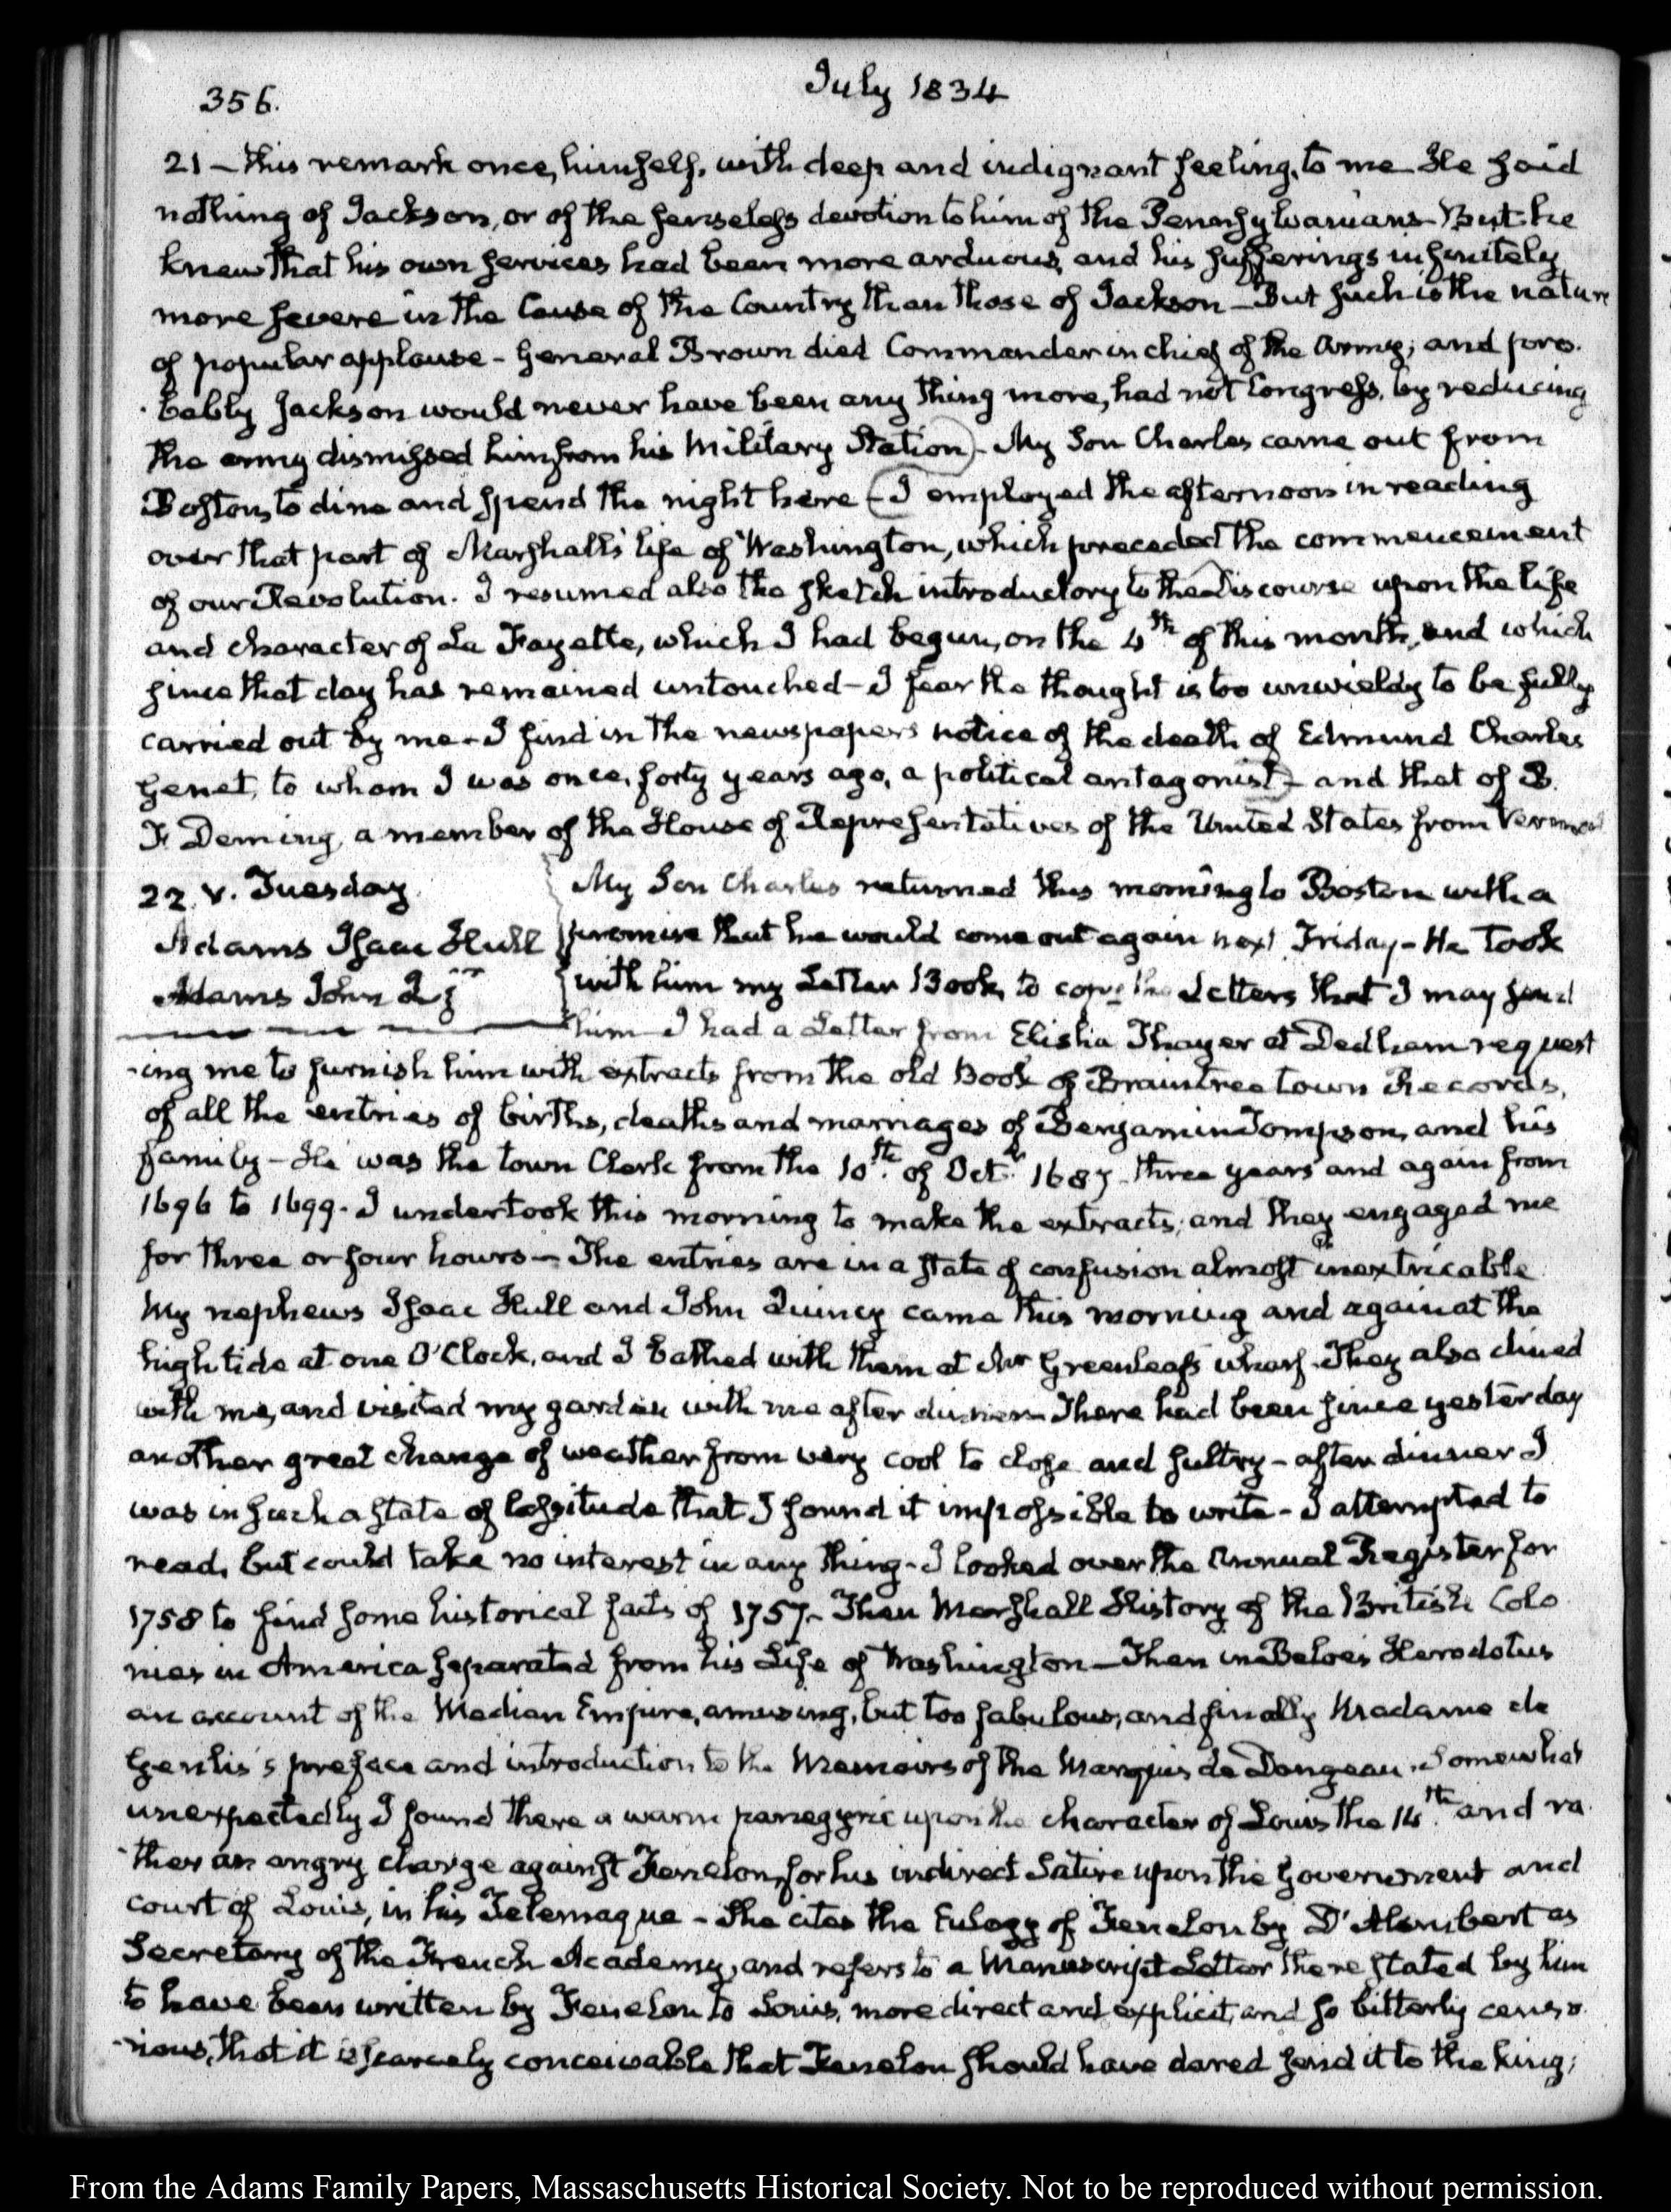 356.
July 1834
21 – this remark once, himself, with deep and indignant feeling, to me – He said
nothing of Jackson, or of the senseless devotion to him of the Pennsylvanians – But he
knew that his own services had been more arduous, and his sufferings infinitely
more severe in the Cause of the Country than those of Jackson – But such is the nature
of popular applause – General Brown died Commander in chief of the Army; and pro.
-babbly Jackson would never have been any thing more, had not Congress, by reducing
the army dismissed him from his Military Station – My Son Charles came out from
Boston, to dine and spend the night here – I employed the afternoon in reading
over that part of Marshall's life of Washington, which preceded the commencement
of our Revolution. I resumed also the sketch introductory to the Discourse upon the life
and character of La Fayette, which I had begun, on the 4th of this month, and which
since that day has remained untouched – I fear the thought is too unwieldy to be fully
carried out by me – I find in the newspapers notice of the death of Edmund Charles
Genet, to whom I was once, forty years ago, a political antagonist – and that of B.
F. Deming, a member of the House of Representatives of the United States from Vermont
22. V. Tuesday
Adams Isaac Hull
Adams John Q jr
My Son Charles returned this morning to Boston with a
promise that he would come out again next Friday – He took
with him my Letter Book, to copy the Letters that I may send
him – I had a Letter from Elisha Thayer at Dedham request
-ing me to furnish him with extracts from the old Book of Braintree town Records,
of all the entries of births, deaths and marriages of Benjamin Tompson, and his
family – He was the town Clerk from the 10th. of Octr. 1687. three years and again from
1696 to 1699. I undertook this morning to make the extracts; and they engaged me
for three or four hours – The entries are in a state of confusion almost inextricable
My nephews Isaac Hull and John Quincy came this morning and again at the
high tide at one O'Clock, and I bathed with them at Mr Greenleaf's wharf. They also dined
with me, and visited my garden with me after dinner – There had been since yesterday
another great change of weather from very cool to close and sultry – after dinner I
was in such a state of lassitude that I found it impossible to write – I attempted to
read, but could take no interest in any thing – I looked over the Annual Register for
1758 to find some historical facts of 1757 – Then Marshall History of the British Colo
nies in America separated from his Life of Washington – Then in Beloe's Herodotus
an account of the Median Empire, amusing, but too fabulous; and finally Madame de
Genlis's preface and introduction to the Memoirs of the Marquis de Dangeau. Somewhat
unexpectedly I found there a warm panegyric upon the character of Louis the 14th. and ra
-ther an angry charge against Fenelon, for his indirect Satire upon the Government and
court of Louis, in his Telemaque – She cites the Eulogy of Fenelon by D'Alembert as
Secretary of the French Academy, and refers to a Manuscript Letter there stated by him
to have been written by Fenelon to Louis, more direct and explicit, and so bitterly censo
-rious, that it is scarcely conceivable that Fenelon should have dared send it to the king;
From the Adams Family Papers, Massachusetts Historical Society. Not to be reproduced without permission.